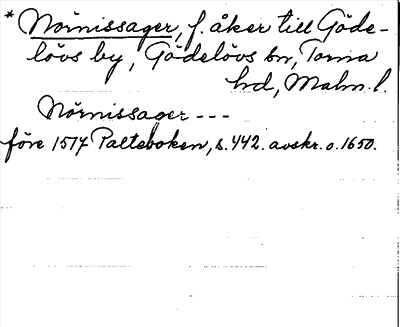 * Nörnissager, f. åker till Göde-
lövs by, Gödelövs sn, Torna
hd, Malm. l.
Nörnissager ---
före 1517 Palteboken, s. 442. avskr. o. 1650.